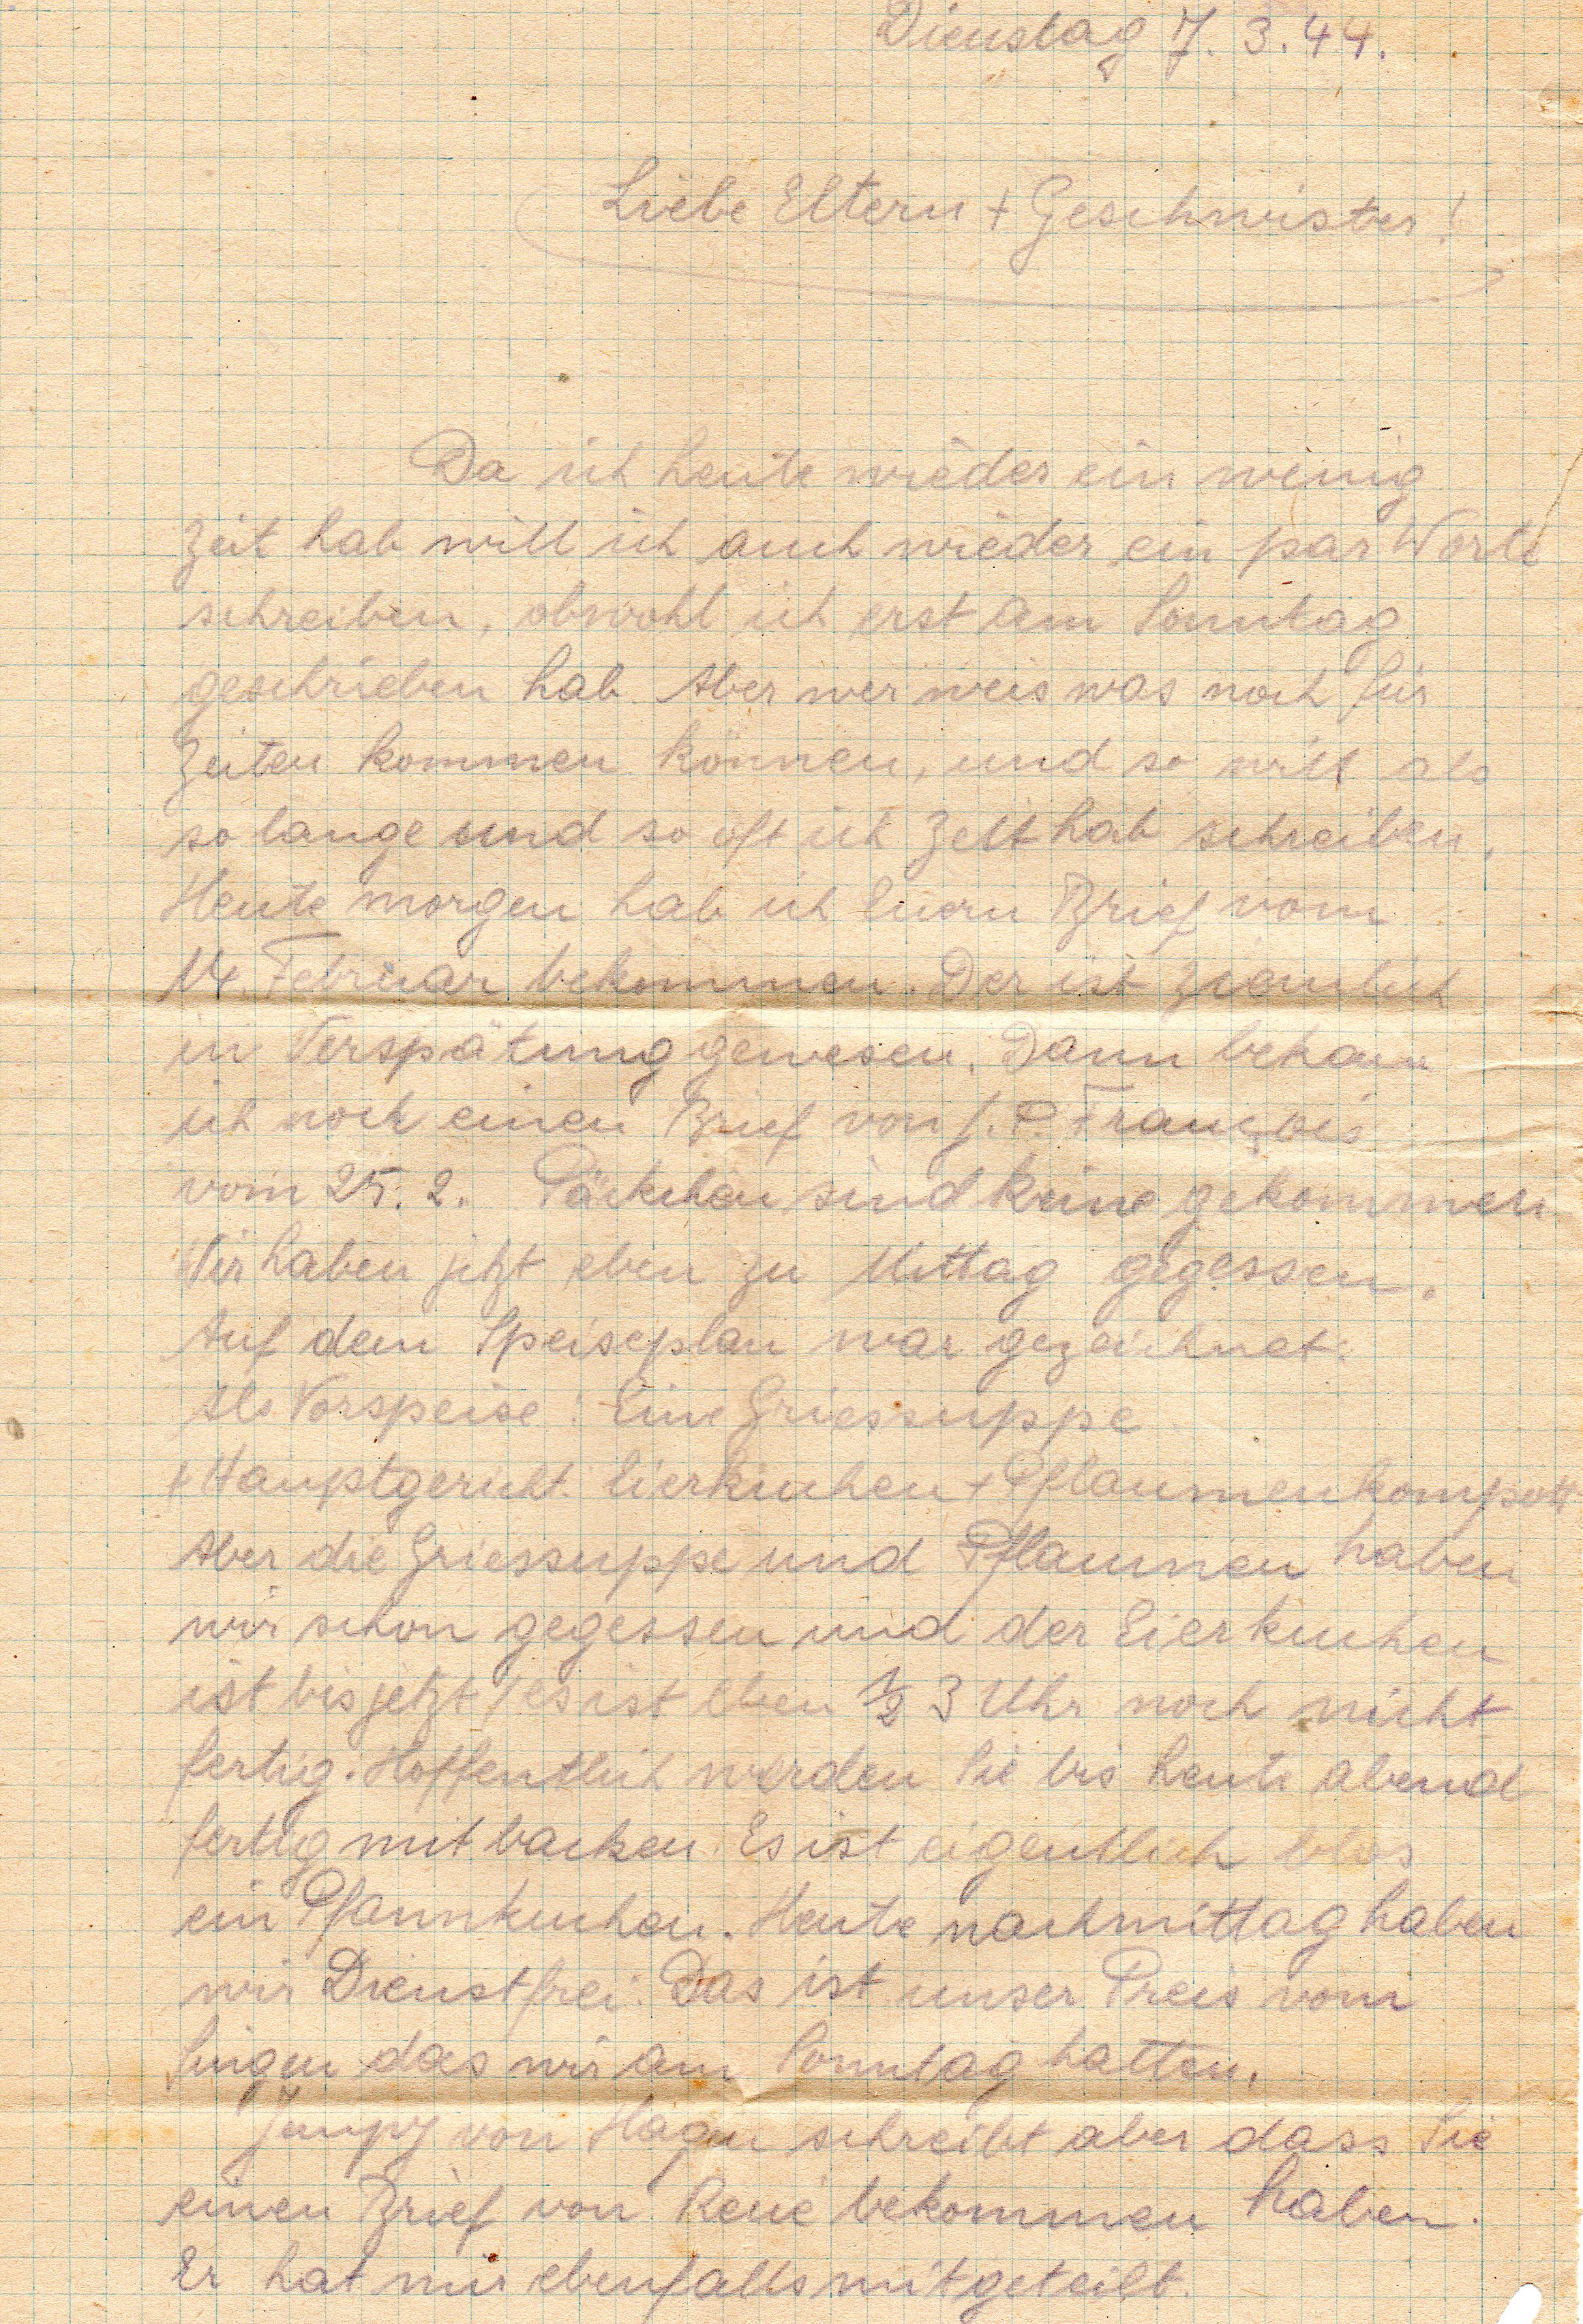 Dienstag 7. 3. 44.
Liebe Eltern + Geschwister!
Da ich heute wieder ein wenig
Zeit hab will ich auch wieder ein par Worte
schreiben, obwohl ich erst am Sonntag
geschrieben hab. Aber wer weis was noch für
Zeiten kommen können, und so will als
so lange und so oft ich Zeit hab schreiben.
Heute morgen hab ich Euern Brief vom
14. Februar bekommen. Der ist ziemlich
in Verspätung gewesen. Dann bekam
ich noch einen Brief von J. P. François
vom 25. 2. Päckchen sind keine gekommen
Wir haben jetzt eben zu Mittag gegessen.
Auf dem Speiseplan war gezeichnet:
Als Vorspeise: Eine Griessuppe
+ Hauptgericht: Eierkuchen + Pflaumenkompott
Aber die Griessuppe und Pflaumen haben
wir schon gegessen und der Eierkuchen
ist bis jetzt / es ist eben ½ 3 Uhr noch nicht
fertig. Hoffentlich werden Sie bis heute abend
fertig mit backen. Es ist eigentlich blos
ein Pfannkuchen. Heute nachmittag haben
wir Dienstfrei. Das ist unser Preis vom
Singen das wir am Sonntag hatten.
Jempy von Hagen schreibt aber dass Sie
einen Brief von René bekommen haben.
Er hat mir ebenfalls mitgeteilt.